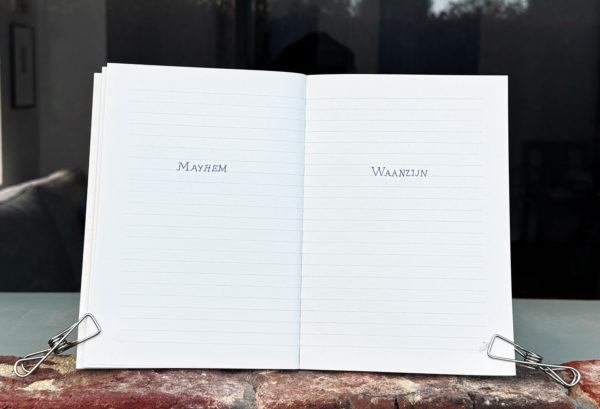 Mayhem
Waanzijn